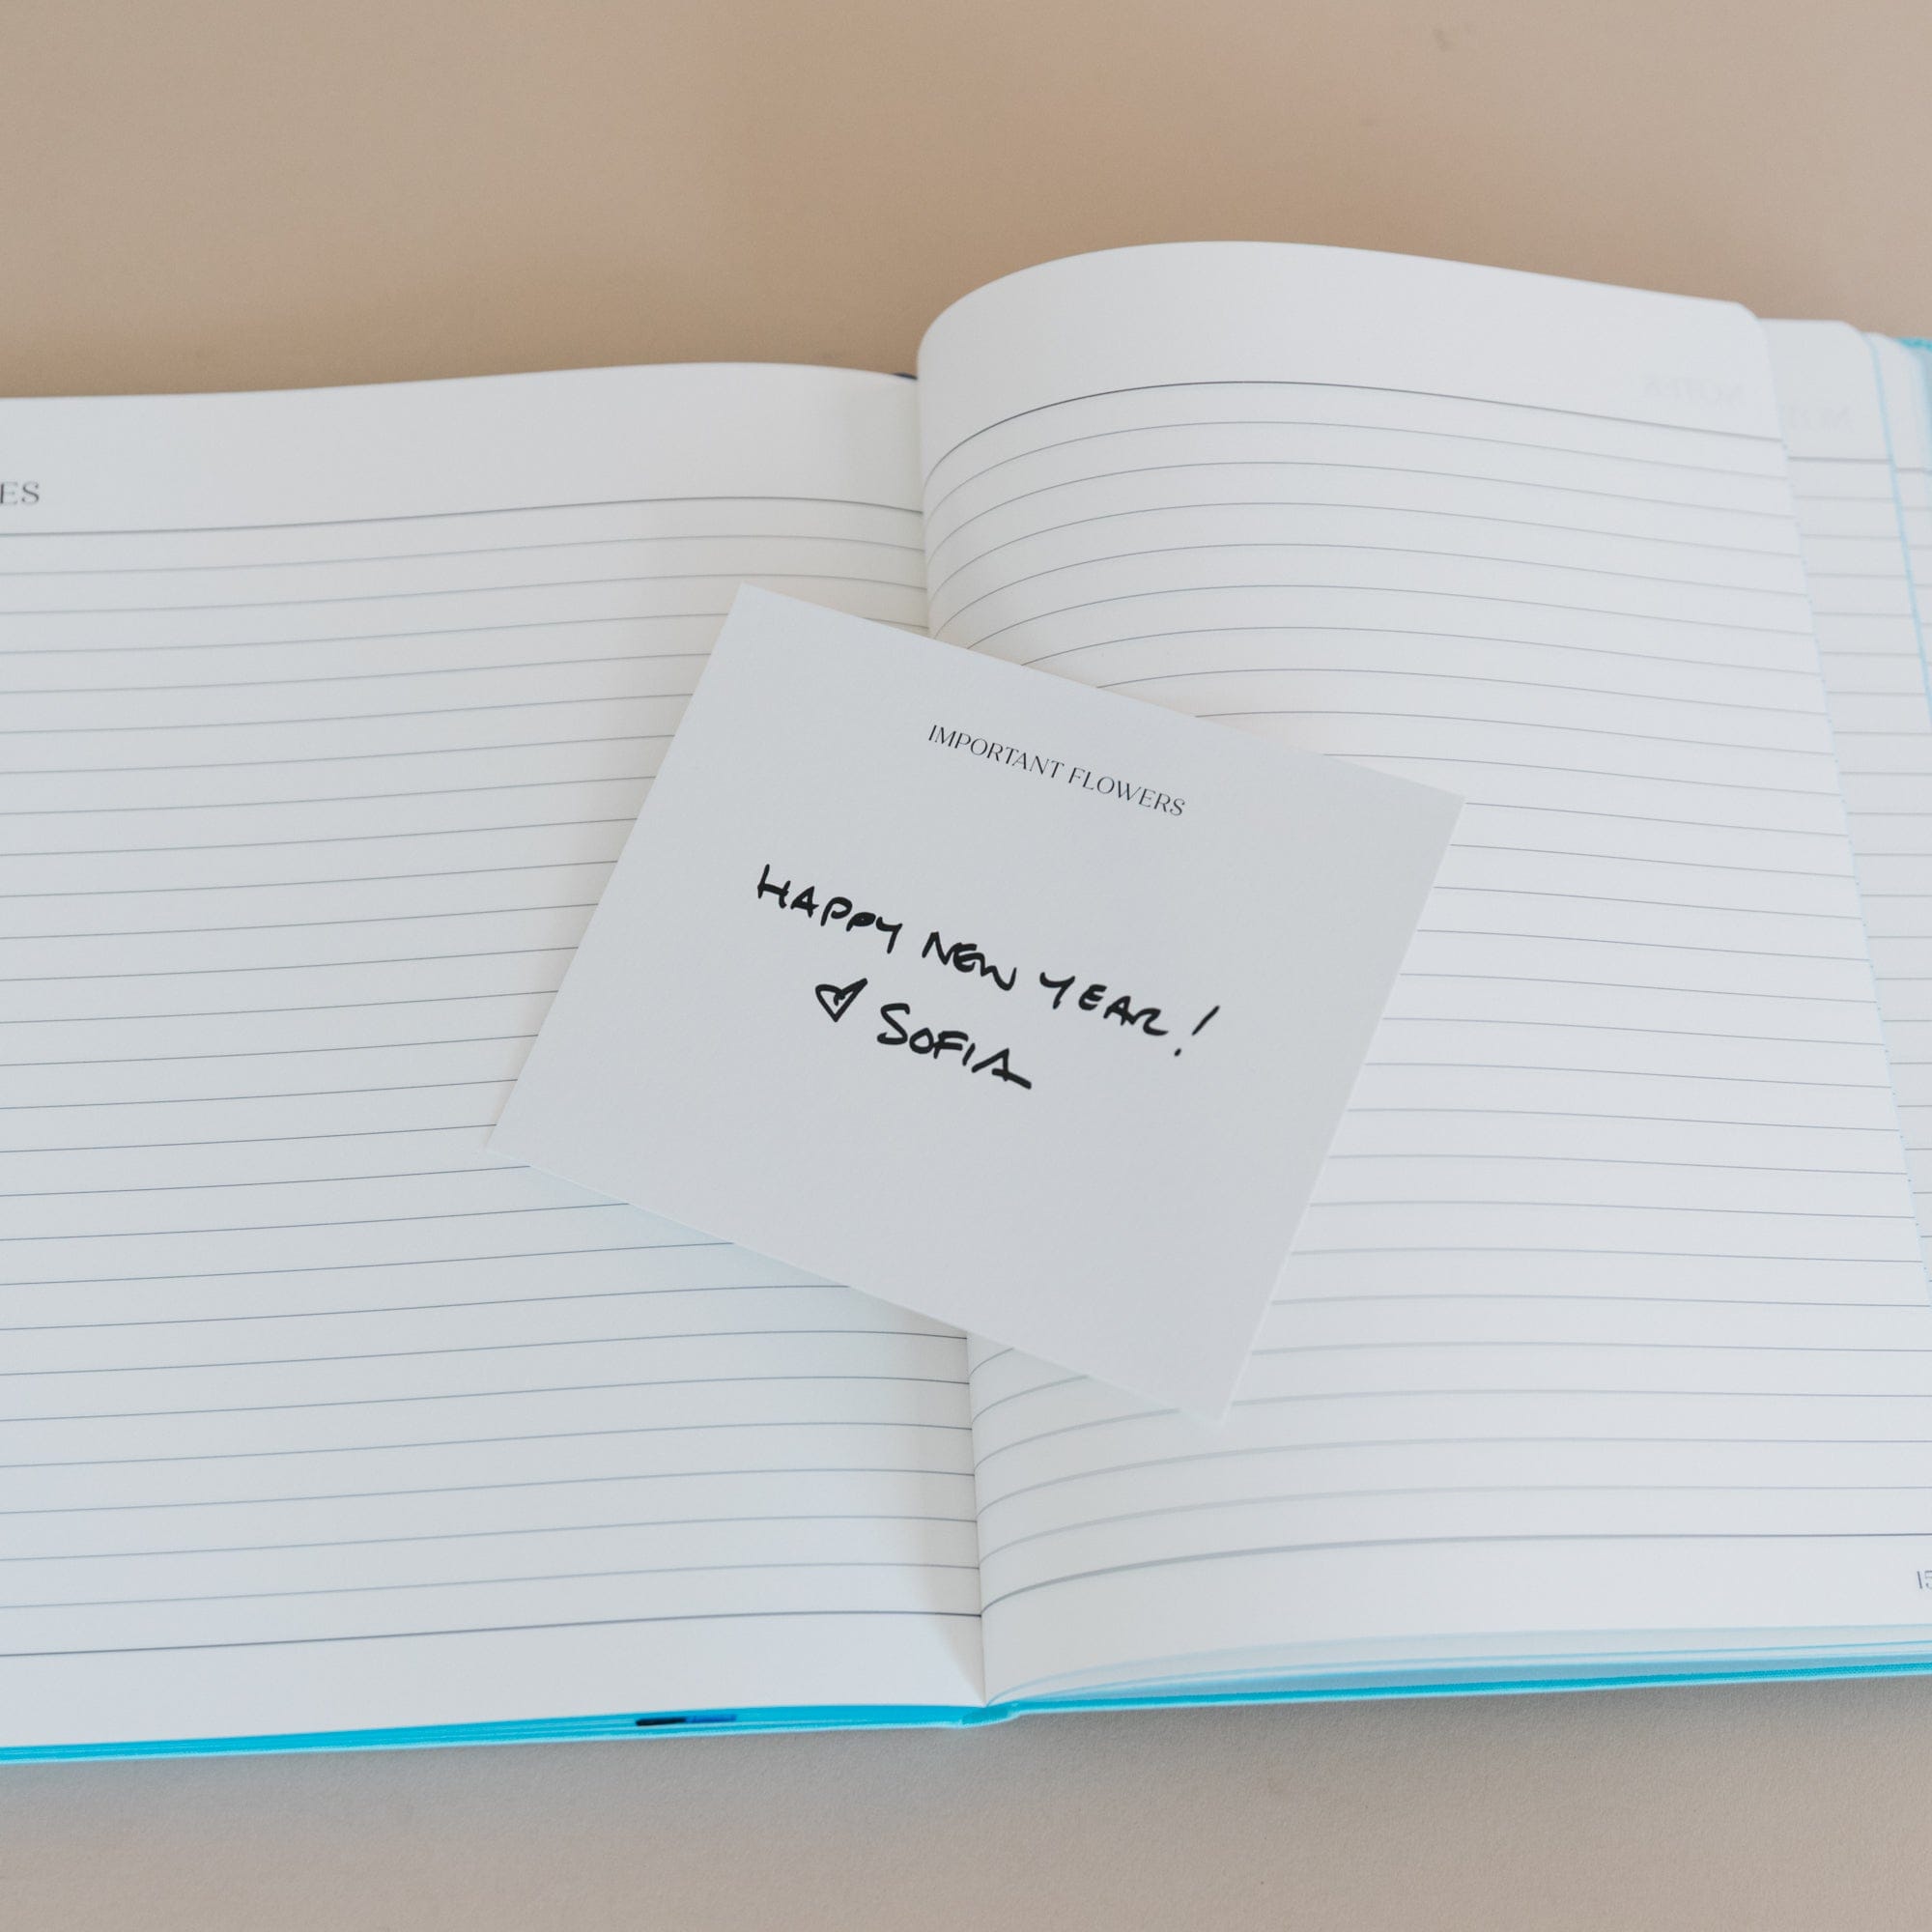 IMPORTANT FLOWERS
HAPPY NEW YEAR!
♡ SOFIA